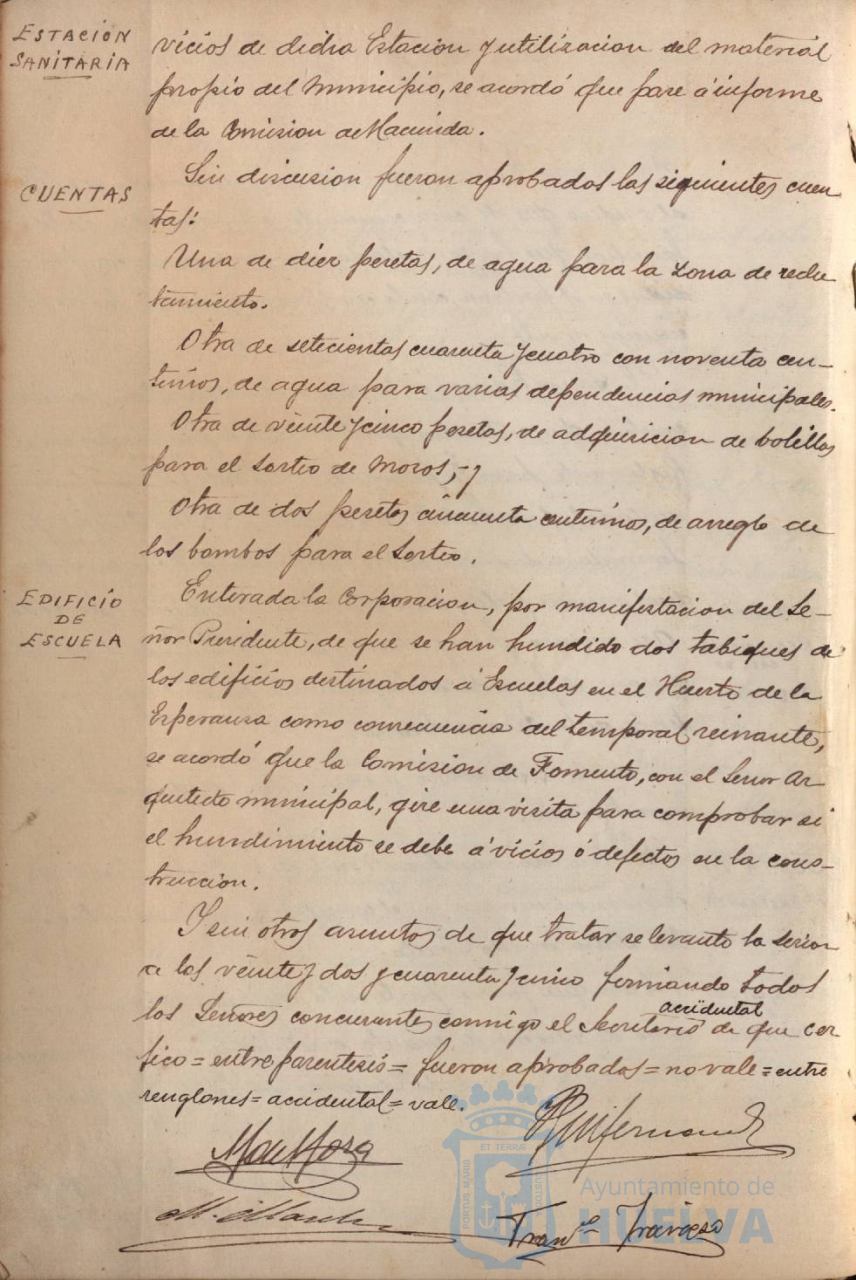 ESTACIÓN
SANITARIA
vicios de dicha Estacion y utilizacion del material
propio del Municipio, se acordó que pase á informe
de la Comision de Hacienda.
CUENTAS
Sin discusion fueron aprobadas las siguientes cuen
tas:
Una de diez pesetas, de agua para la zona de reclu
tamiento.
Otra de setecientas cuarenta y cuatro con noventa cen-
timos, de agua para varias dependencias municipales.
Otra de veinte y cinco pesetas, de adquisicion de bolillas
para el sorteo de mozos, - y
Otra de dos pesetas cincuenta centimos, de arreglo de
los bombos para el sorteo.
EDIFICIO
DE
ESCUELA
Enterada la Corporacion, por manifestacion del Se-
ñor Presidente, de que se han hundido dos tabiques de
los edificios destinados á Escuelas en el Huerto de la
Esperanza como consecuencia del temporal reinante,
se acordó que la Comision de Fomento, con el Señor Ar
quitecto municipal, gire una visita para comprobar si
el hundimiento se debe á vicios ó defectos en la cons-
truccion.
Y sin otros asuntos de que tratar se levanto la sesion
a las veinte y dos y cuarenta y cinco firmando todos
los Señores concurrentes conmigo el Secretario accidental de que cer
tico = entre parentesis = fueron aprobados = no vale = entre
renglones = accidental = vale.
Franco Travieso
PORTUS MARIS ET TERRAE CUSTODIA
Ayuntamiento de
HUELVA